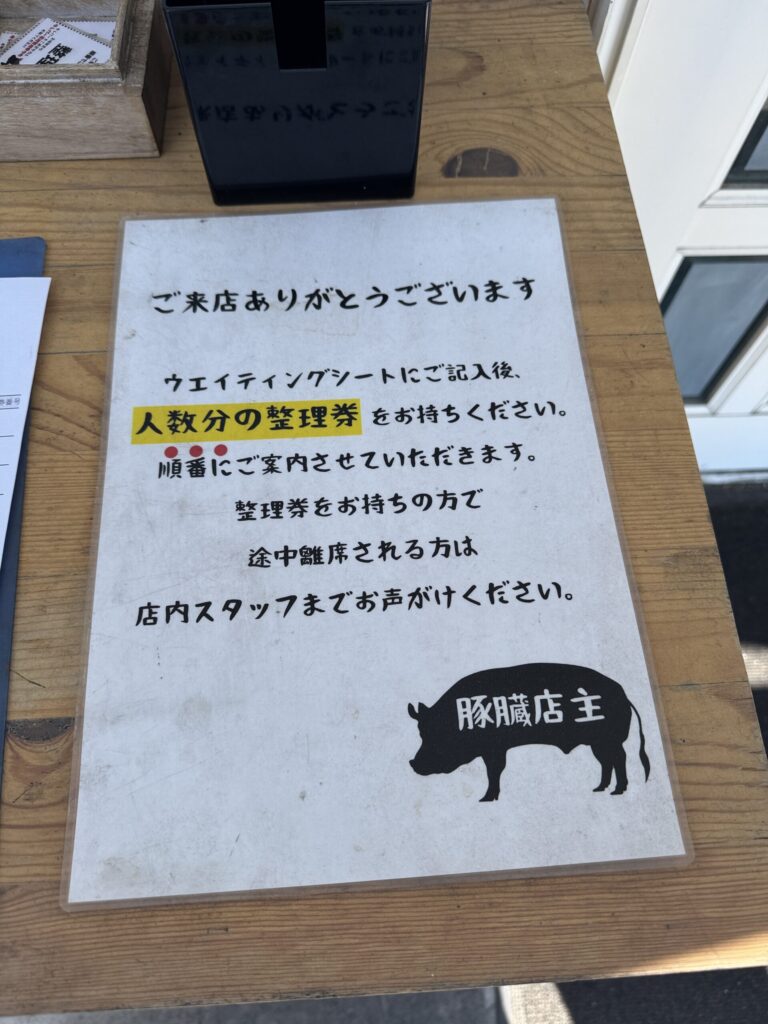 ご来店ありがとうございます
ウエイティングシートにご記入後、
人数分の整理券 をお持ちください。
順番にご案内させていただきます。
整理券をお持ちの方で
途中離席される方は
店内スタッフまでお声がけください。
豚臓店主